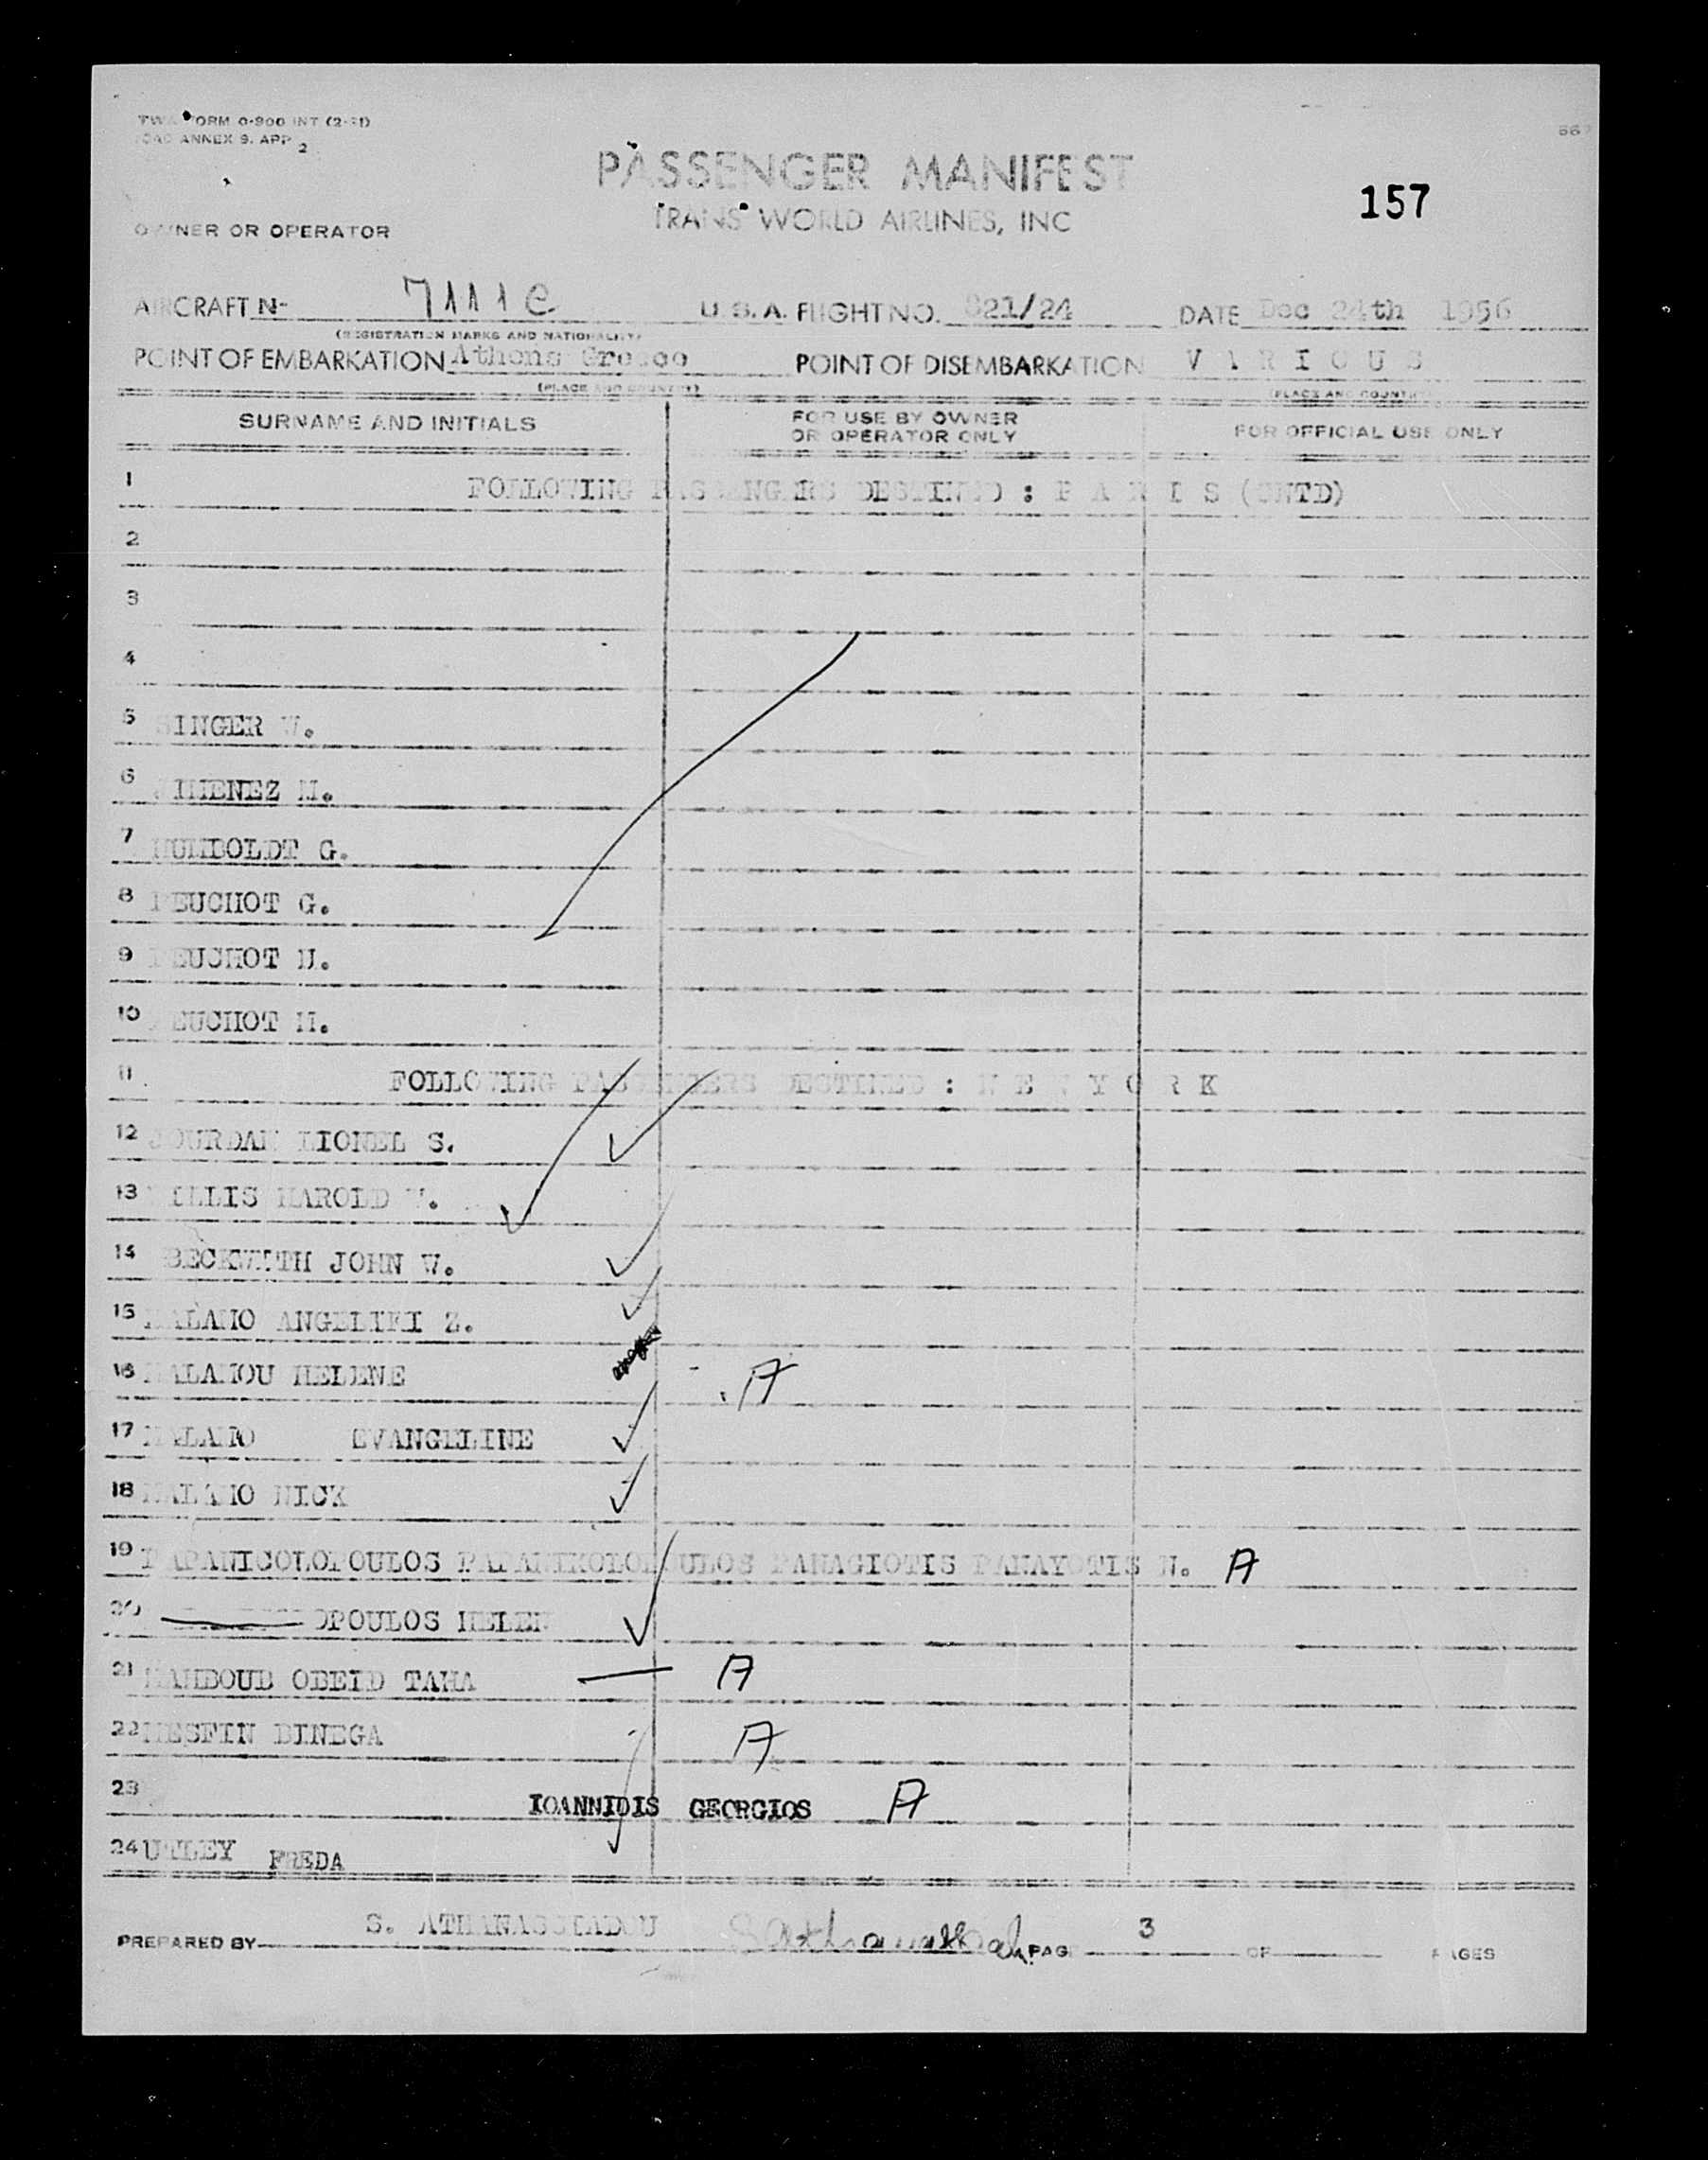 FORM 0-900 INT
ANNEX 9. APP 2
PASSENGER MANIFEST
157
TRANS WORLD AIRLINES, INC
OWNER OR OPERATOR
AIRCRAFT N- 7111C U.S.A. FLIGHT NO. 821/24 DATE Dec 24th 1956
(REGISTRATION MARKS AND NATIONALITY)
POINT OF EMBARKATION Athens Greece POINT OF DISEMBARKATION V A R I O U S
(PLACE AND COUNTRY) (PLACE AND COUNTRY)
SURNAME AND INITIALS FOR USE BY OWNER OR OPERATOR ONLY FOR OFFICIAL USE ONLY
1 FOLLOWING PASSENGERS DESTINED : P A R I S (CNTD)
2
3
4
5 SINGER W.
6 JIMENEZ M.
7 HUMBOLDT G.
8 PEUCHOT G.
9 PEUCHOT N.
10 PEUCHOT H.
11 FOLLOWING PASSENGERS DESTINED : N E W Y O R K
12 JOURDAN LIONEL S.
13 WILLIS HAROLD W.
14 BECKWITH JOHN W.
15 MALAMO ANGELIKI Z.
16 MALAMOU HELENE A
17 MALAMO EVANGELINE
18 MALAMO NICK
19 PAPANICOLOPOULOS PAPANIKOLOPOULOS PANAGIOTIS PANAYOTIS N. A
20 OPOULOS HELEN
21 MAHBOUB OBEID TAHA A
22 MESFIN BINEGA A
23 IOANNIDIS GEORGIOS A
24 UTLEY FREDA
PREPARED BY S. ATHANASSIADOU PAGE 3 OF PAGES